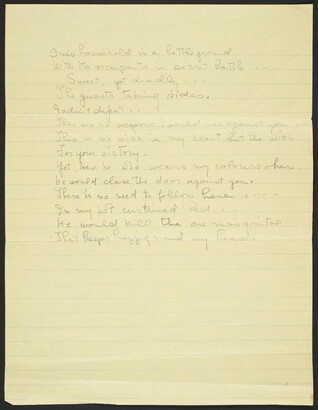 One's household is a battleground
With its occupants in secret battle ....
Sweet, yet deadly ...
The guests taking sides.
I admit defeat ...
There are no weapons I would use against you
There is no wish in my heart but the wish
For your victory.
Yet, were he who wears my colours here
He would close the door against you.
There is no need to follow here ....
In my hot curtained bed ...
He would kill the one mosquito
That keeps buzzing round my head.